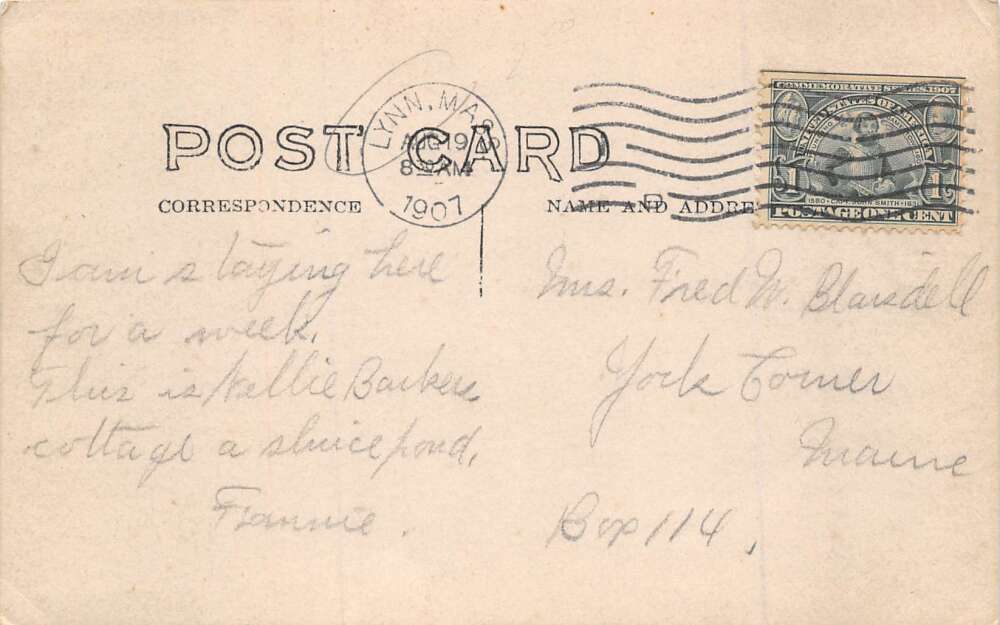 POST CARD
LYNN, MASS
AUG 19
8 30 AM
1907
COMMEMORATIVE SERIES 1907
UNITED STATES OF AMERICA
1 1
1580 · CAPT. JOHN SMITH · 1631
POSTAGE ONE CENT
CORRESPONDENCE
NAME AND ADDRE
I am staying here
for a week.
This is Nellie Barkers
cottage a sluice pond.
Fannie.
Mrs. Fred M. Blaisdell
York Corner
Maine
Box 114.